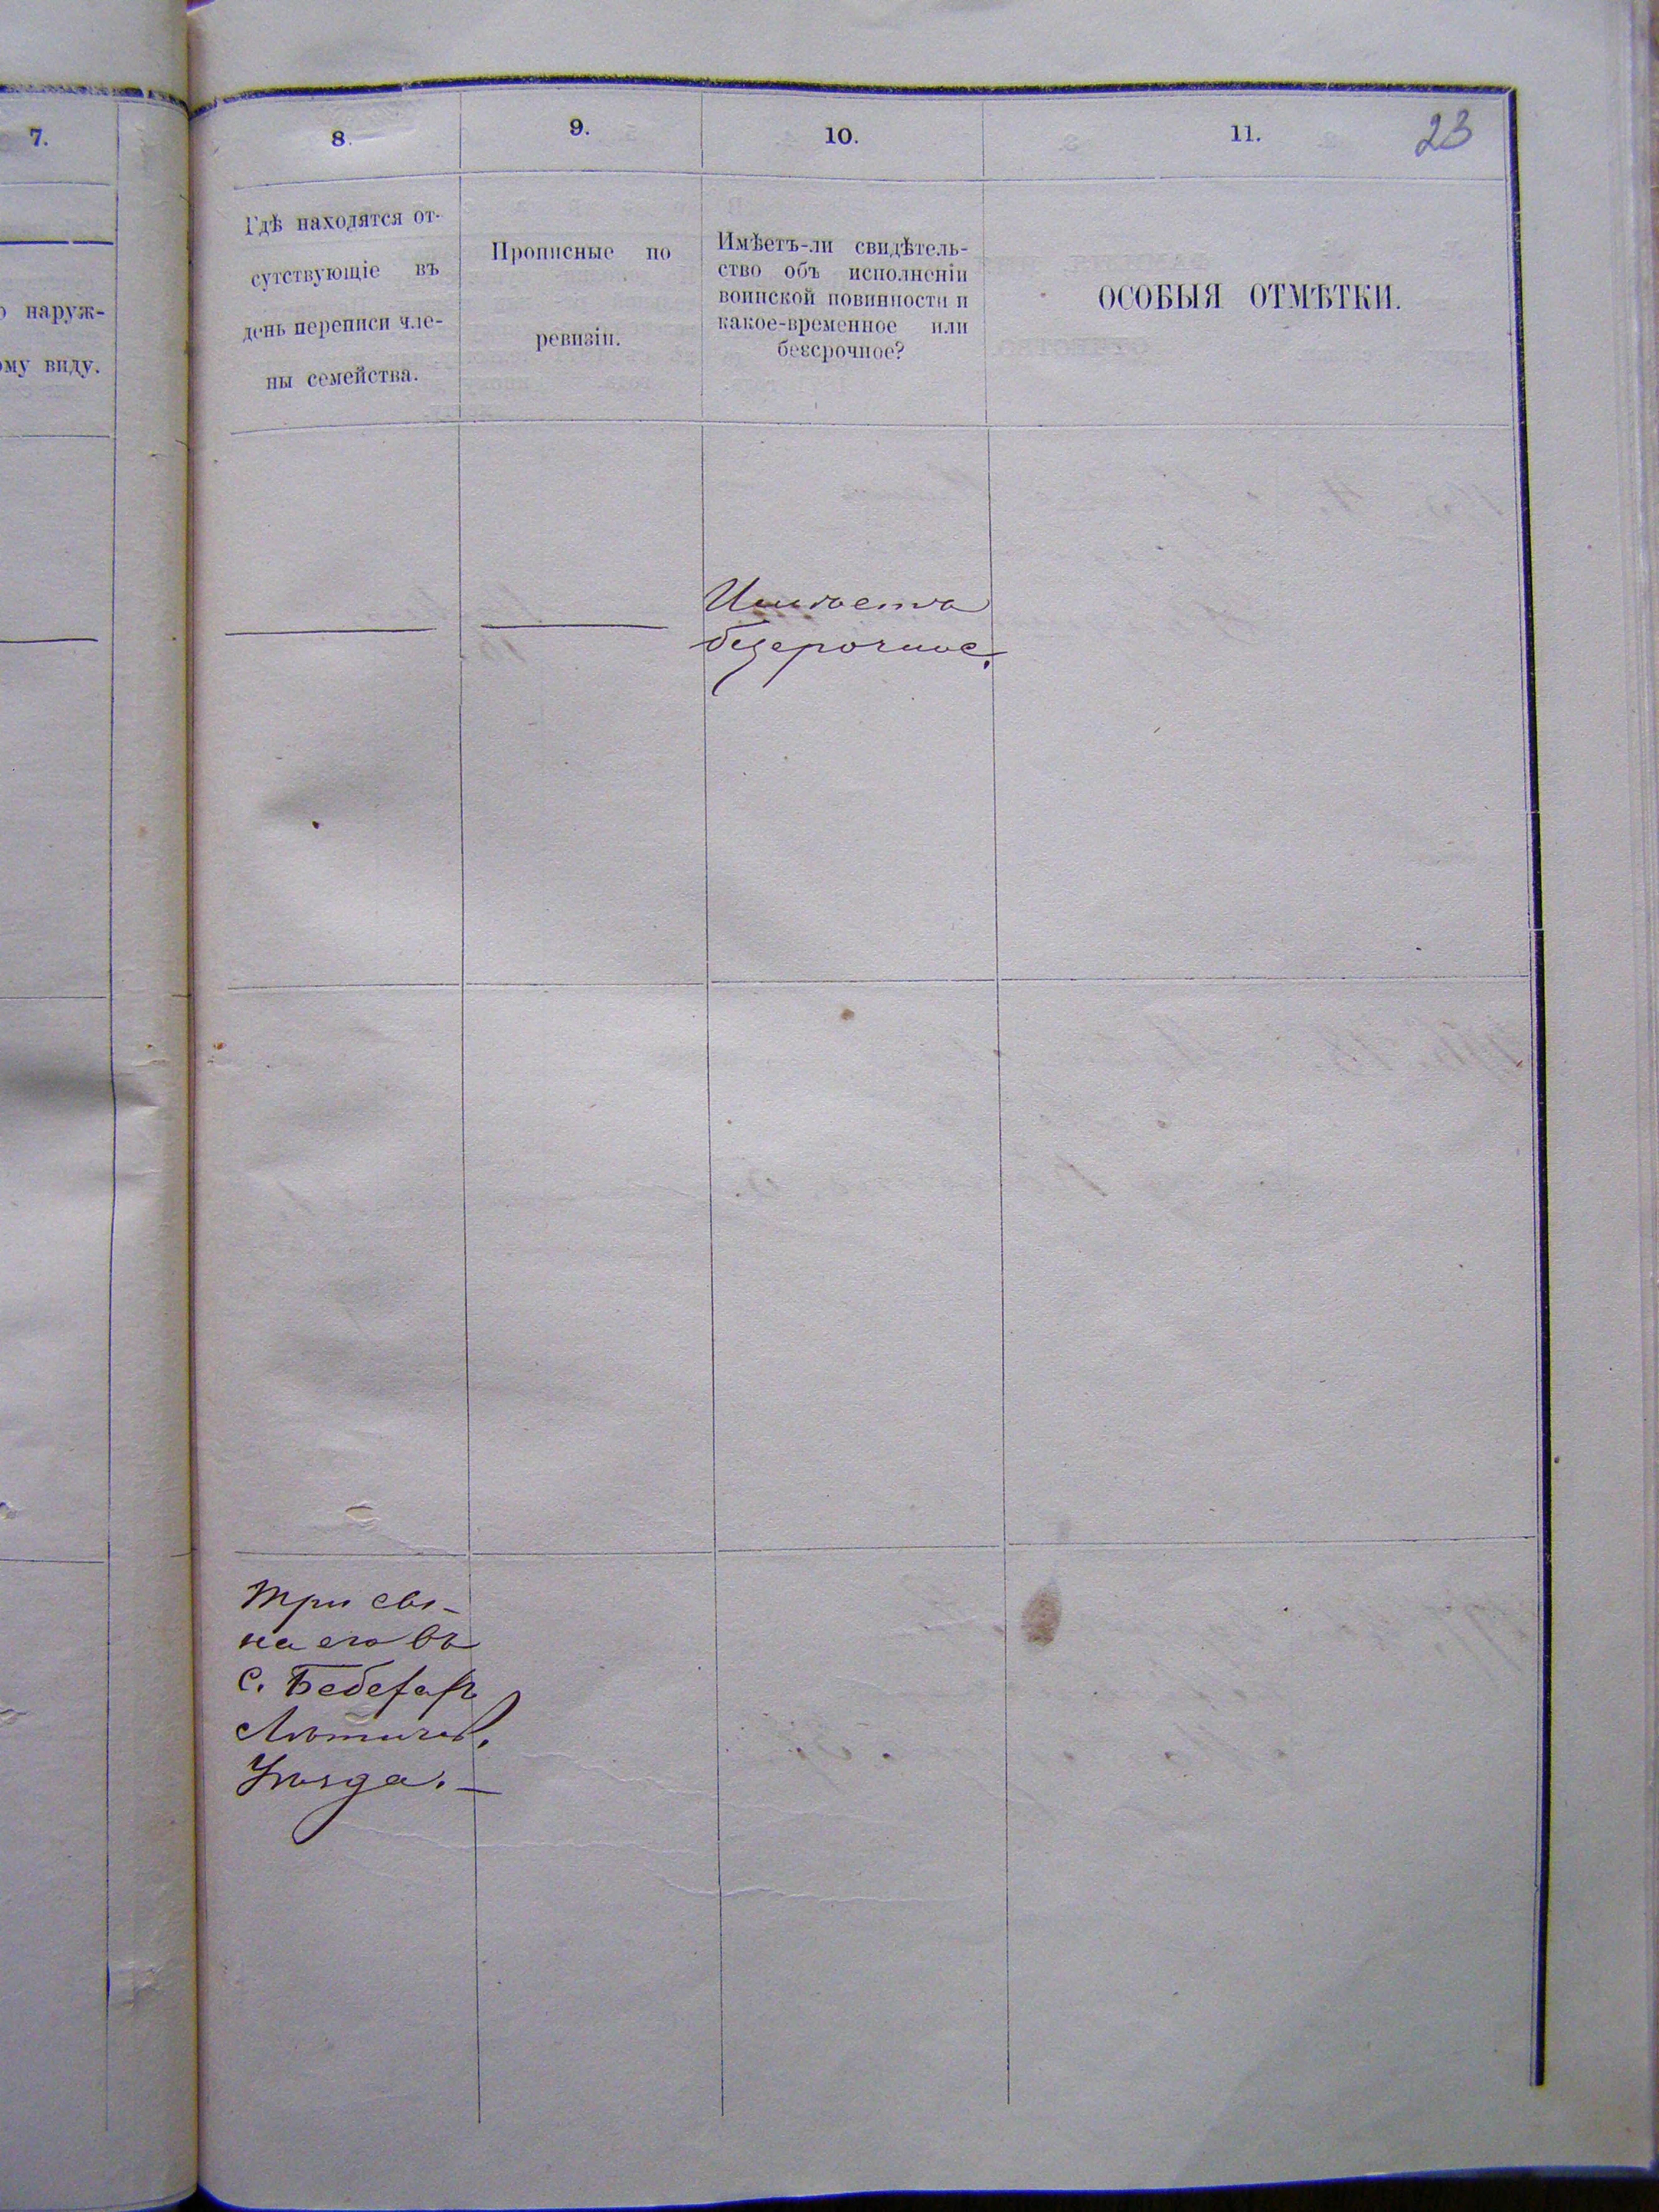 7.
8.
9.
10.
11.
23
о наруж-
ому виду.
Гдѣ находятся от-
сутствующіе въ
день переписи чле-
ны семейства.
Прописные по
ревизіи.
Имѣетъ-ли свидѣтель-
ство объ исполненіи
воинской повинности и
какое-временное или
безсрочное?
ОСОБЫЯ ОТМѢТКИ.
Имѣетъ
безсрочное.
Три сы-
на его въ
с.
Летичев.
Уѣзда. —